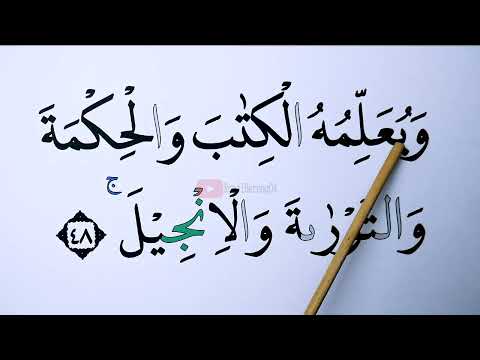 وَيُعَلِّمُهُ الْكِتٰبَ وَالْحِكْمَةَ
وَالتَّوْرٰىةَ وَالْاِنْجِيْلَ ۚ ﴿٤٨﴾